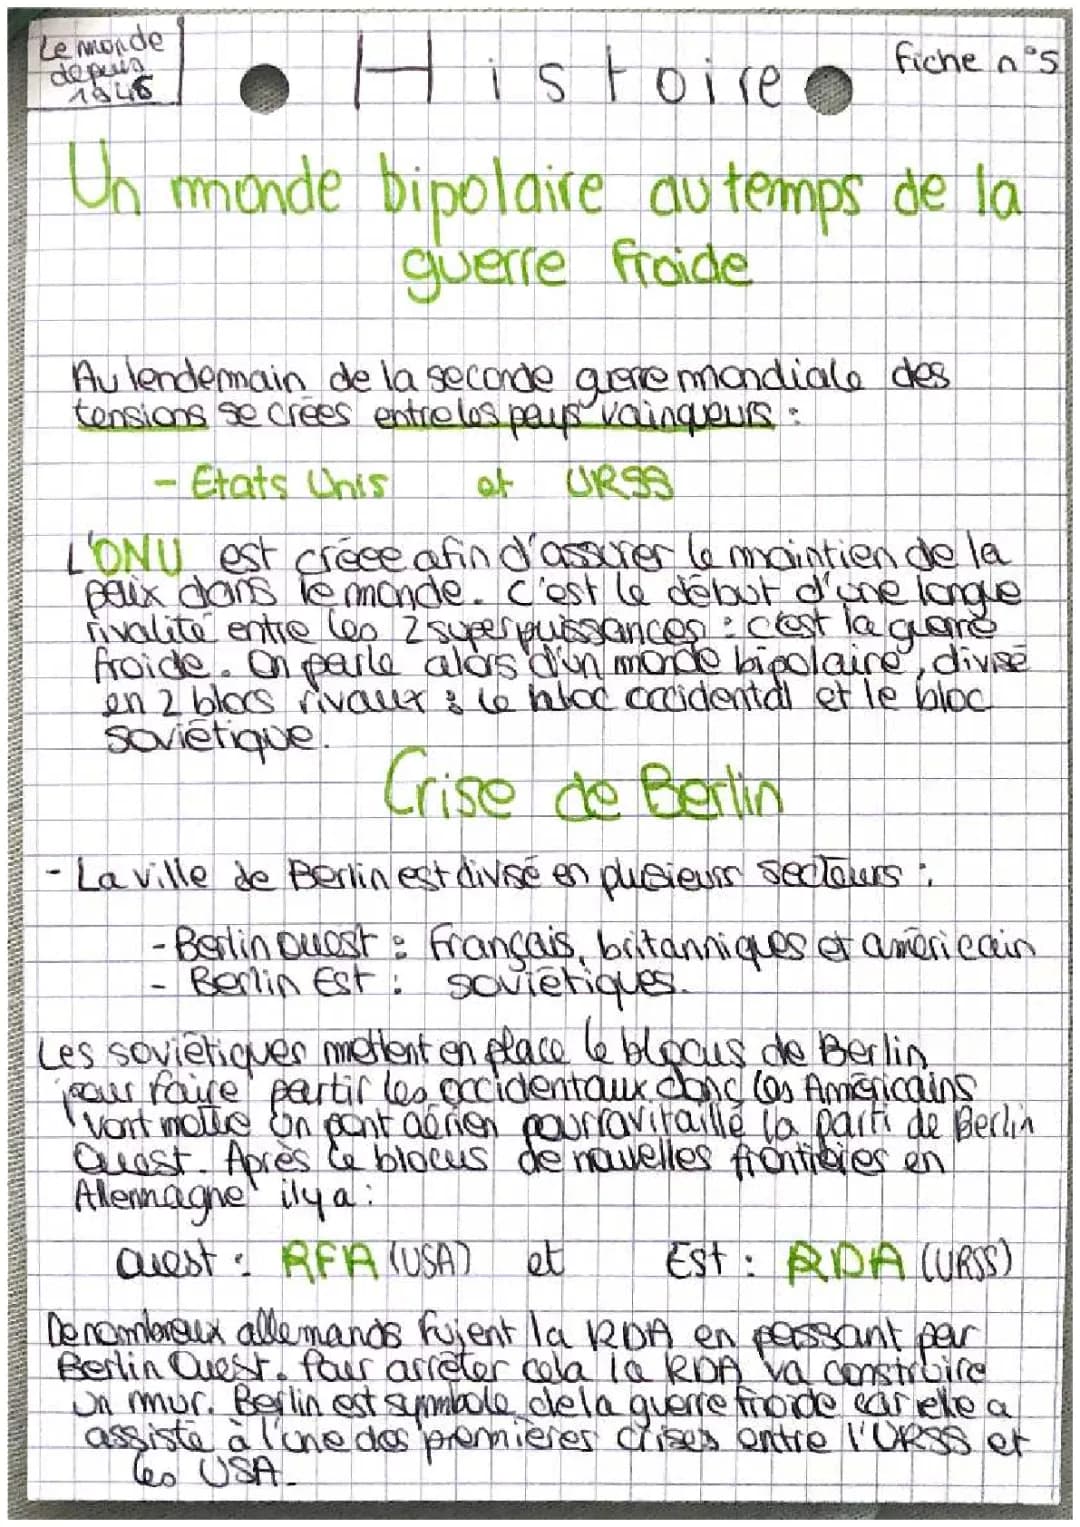 Le monde
depuis
1945
Histoire
fiche n°5
Un monde bipolaire au temps de la
guerre froide
Au lendemain de la seconde guerre mondiale des
tensions se crées entre les pays vainqueurs :
- Etats Unis et URSS
L'ONU est créee afin d'assurer le maintien de la
paix dans le monde. C'est le début d'une longue
rivalité entre les 2 superpuissances : c'est la guerre
froide. On parle alors d'un monde bipolaire, divisé
en 2 blocs rivaux : le bloc occidental et le bloc
soviétique.
Crise de Berlin
- La ville de Berlin est divisé en plusieurs secteurs :
- Berlin Ouest : français, britanniques et américain
- Berlin Est : soviétiques.
Les soviétiques mettent en place le blocus de Berlin
pour faire partir les occidentaux donc les Américains
vont mettre un pont aérien pour ravitaillé la parti de Berlin
Ouest. Après le blocus de nouvelles frontières en
Allemagne il y a :
Ouest : RFA (USA) et Est : RDA (URSS)
De nombreux allemands fuient la RDA en passant par
Berlin Ouest. Pour arrêter cela la RDA va construire
un mur. Berlin est symbole de la guerre froide car elle a
assisté à l'une des premières crises entre l'URSS et
les USA.